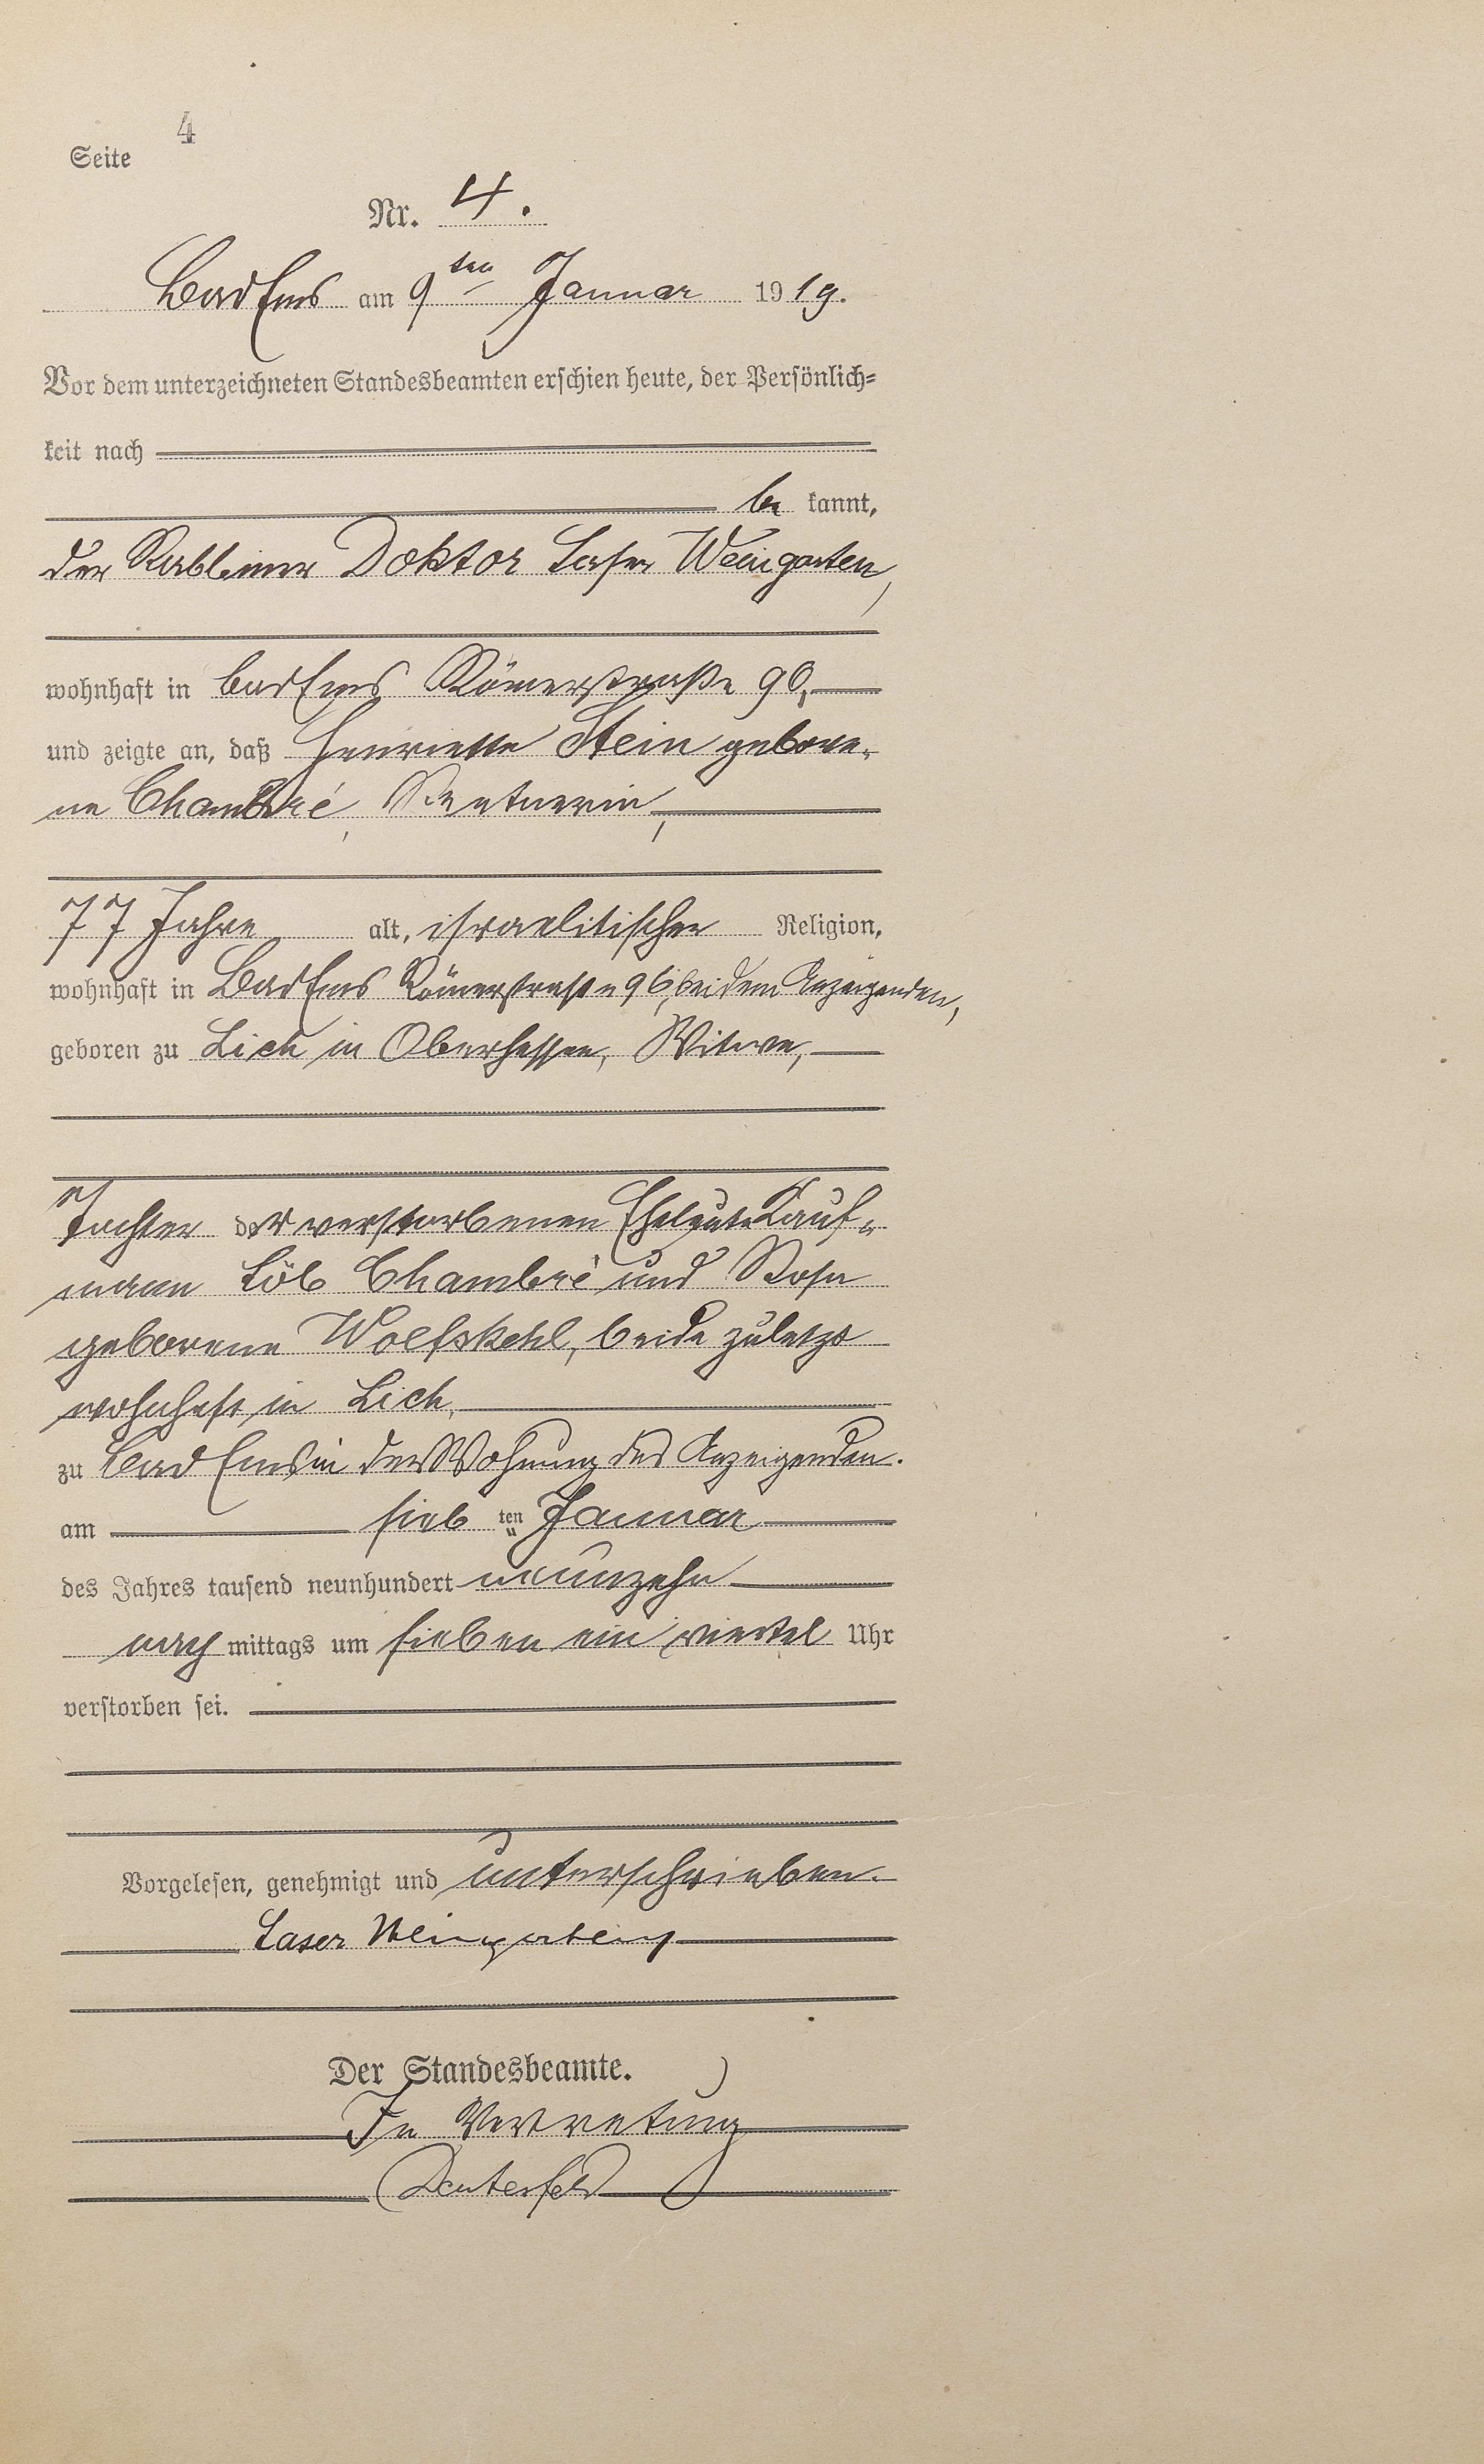 Seite 4
Nr. 4.
Bad Ems am 9ten Januar 1919.
Vor dem unterzeichneten Standesbeamten erschien heute, der Persönlich=
keit nach
be kannt,
der Rabbiner Doktor Laser Weingarten,
wohnhaft in Bad Ems Römerstraße 96,
und zeigte an, daß Henriette Stein gebore=
ne Chambré, Rentnerin,
77 Jahre alt, israelitischer Religion,
wohnhaft in Bad Ems Römerstraße 96, bei dem Anzeigenden,
geboren zu Lich in Oberhessen, Witwe,
Tochter der verstorbenen Eheleute Kauf=
mann Löb Chambré und Rosa
geborene Wolfskehl, beide zuletzt
wohnhaft in Lich,
zu Bad Ems in der Wohnung des Anzeigenden.
am sieb ten Januar
des Jahres tausend neunhundert neunzehn
nach mittags um sieben ein viertel Uhr
verstorben sei.
Vorgelesen, genehmigt und unterschrieben.
Laser Weingarten
Der Standesbeamte.
In Vertretung